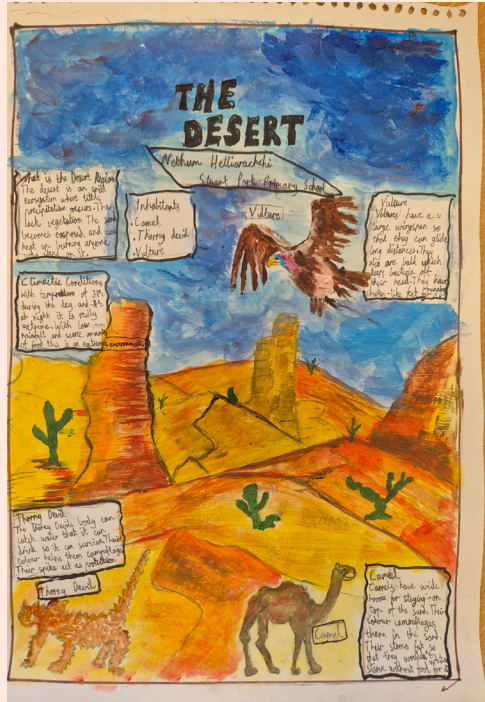 THE
DESERT
Nethum Hettiarachchi
Stuart Park Primary School
What is the Desert Region
The desert is an arid
ecosystem where little
precipitation occurs. The
lack vegetation The sand
becomes exposed and can
heat up, burning anyone
who stands on it.
Inhabitants
. Camel
. Thorny devil
. Vulture
Vulture
Vulture
Vultures have a
large wingspan so
that they can glide
long distances. They
also are bald which
keeps bacteria off
their head. They have
Climactic Conditions
with temperature of 38°
during the day and
at night it is really
extreme. With low
rainfall and scarce amount
of food this is an extreme environment.
Thorny Devil
The Thorny Devils body can
catch water that it can
drink so it can survive. Their
colour helps them camouflage
Their spikes act as protection
Thorny Devil
Camel
Camel
Camels have wide
hooves for staying on
top of the sand. Their
colour camouflages
them in the sand.
Their store fat so
that they wouldn't
starve without food for a